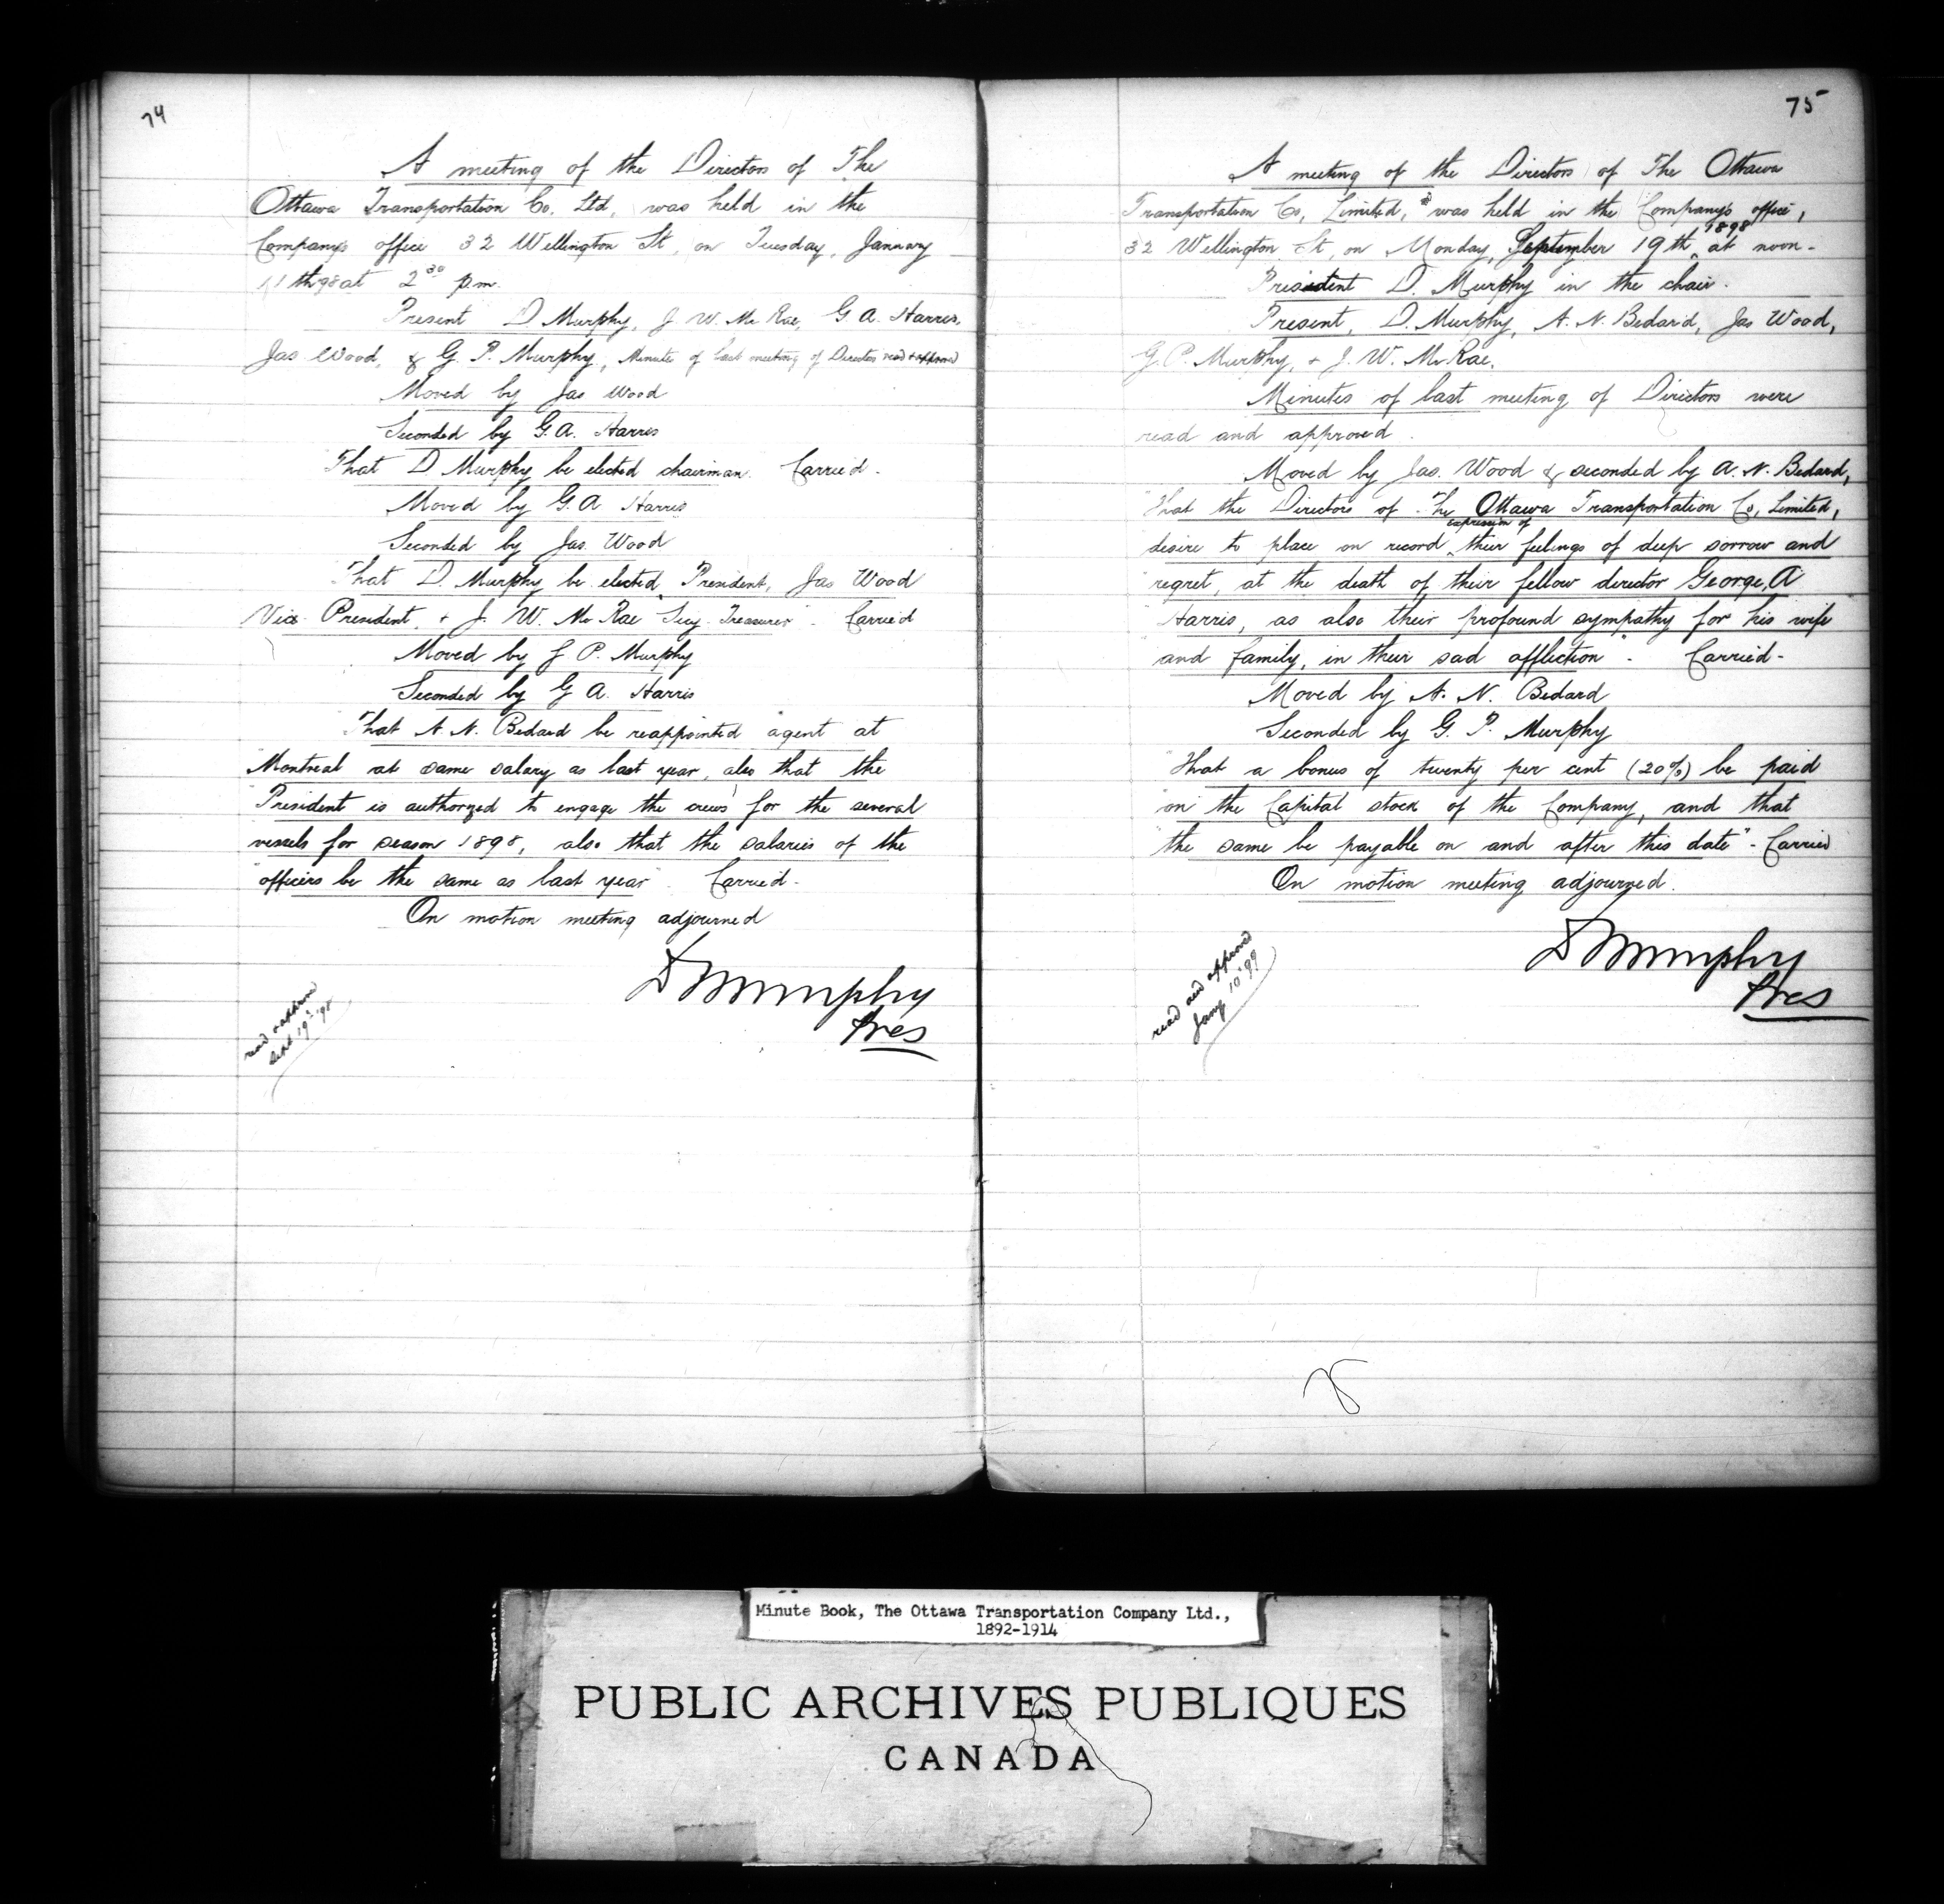 74
A meeting of the Directors of The
Ottawa Transportation Co. Ltd, was held in the
Company's office 32 Wellington St, on Tuesday, January
11th 98 at 2 30 p.m.
Present D. Murphy, J. W. McRae, G. A. Harris,
Jas. Wood, & G. P. Murphy, Minute of last meeting of Directors read & approved
Moved by Jas Wood
Seconded by G. A. Harris
"That D Murphy be elected chairman. Carried.
Moved by G. A Harris
Seconded by Jas. Wood
"That D. Murphy be elected President, Jas Wood
Vice President, + J. W. McRae Secy. Treasurer". Carried
Moved by G P. Murphy
Seconded by G A. Harris
"That A. N. Bedard be reappointed agent at
"Montreal at same salary as last year, also that the
"President is authorized to engage the crews for the several
vessels for season 1898, also that the salaries of the
"officers be the same as last year". Carried.
On motion meeting adjourned
D Murphy
Pres
read & approved
Sept 19th '98
75
A meeting of the Directors of The Ottawa
Transportation Co, Limited, was held in the Company's office,
32 Wellington St, on Monday, September 19th, 1898 at noon.
President D. Murphy in the chair.
Present, D. Murphy, A. N. Bedard, Jas Wood,
G. P. Murphy, + J. W. McRae.
Minutes of last meeting of Directors were
read and approved.
Moved by Jas. Wood & seconded by A. N. Bedard,
"That the Directors of The Ottawa Transportation Co, Limited,
desire to place on record expression of their feelings of deep sorrow and
"regret, at the death of their fellow director George. A
"Harris, as also their profound sympathy for his wife
"and family, in their sad affliction". Carried.
Moved by A. N. Bedard
Seconded by G. P. Murphy
"That a bonus of twenty per cent (20%) be paid
"on the Capital stock of the Company, and that
"the same be payable on and after this date". Carried
On motion meeting adjourned.
D Murphy
Pres
read and approved
Jany 10th '99
Minute Book, The Ottawa Transportation Company Ltd.,
1892-1914
PUBLIC ARCHIVES PUBLIQUES
CANADA